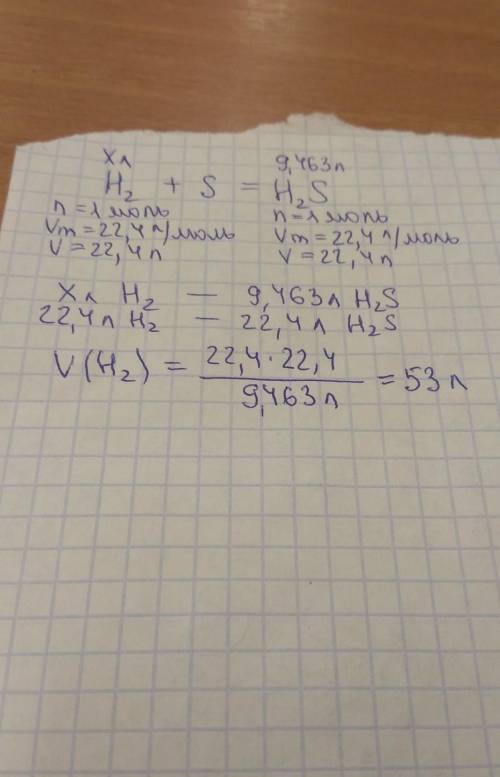 Xл 9,463л
H₂ + S = H₂S
n = 1 моль n = 1 моль
Vm = 22,4 л/моль Vm = 22,4 л/моль
V = 22,4 л V = 22,4 л
Xл H₂ — 9,463л H₂S
22,4л H₂ — 22,4 л H₂S
V(H₂) = 22,4 · 22,4 / 9,463л = 53 л